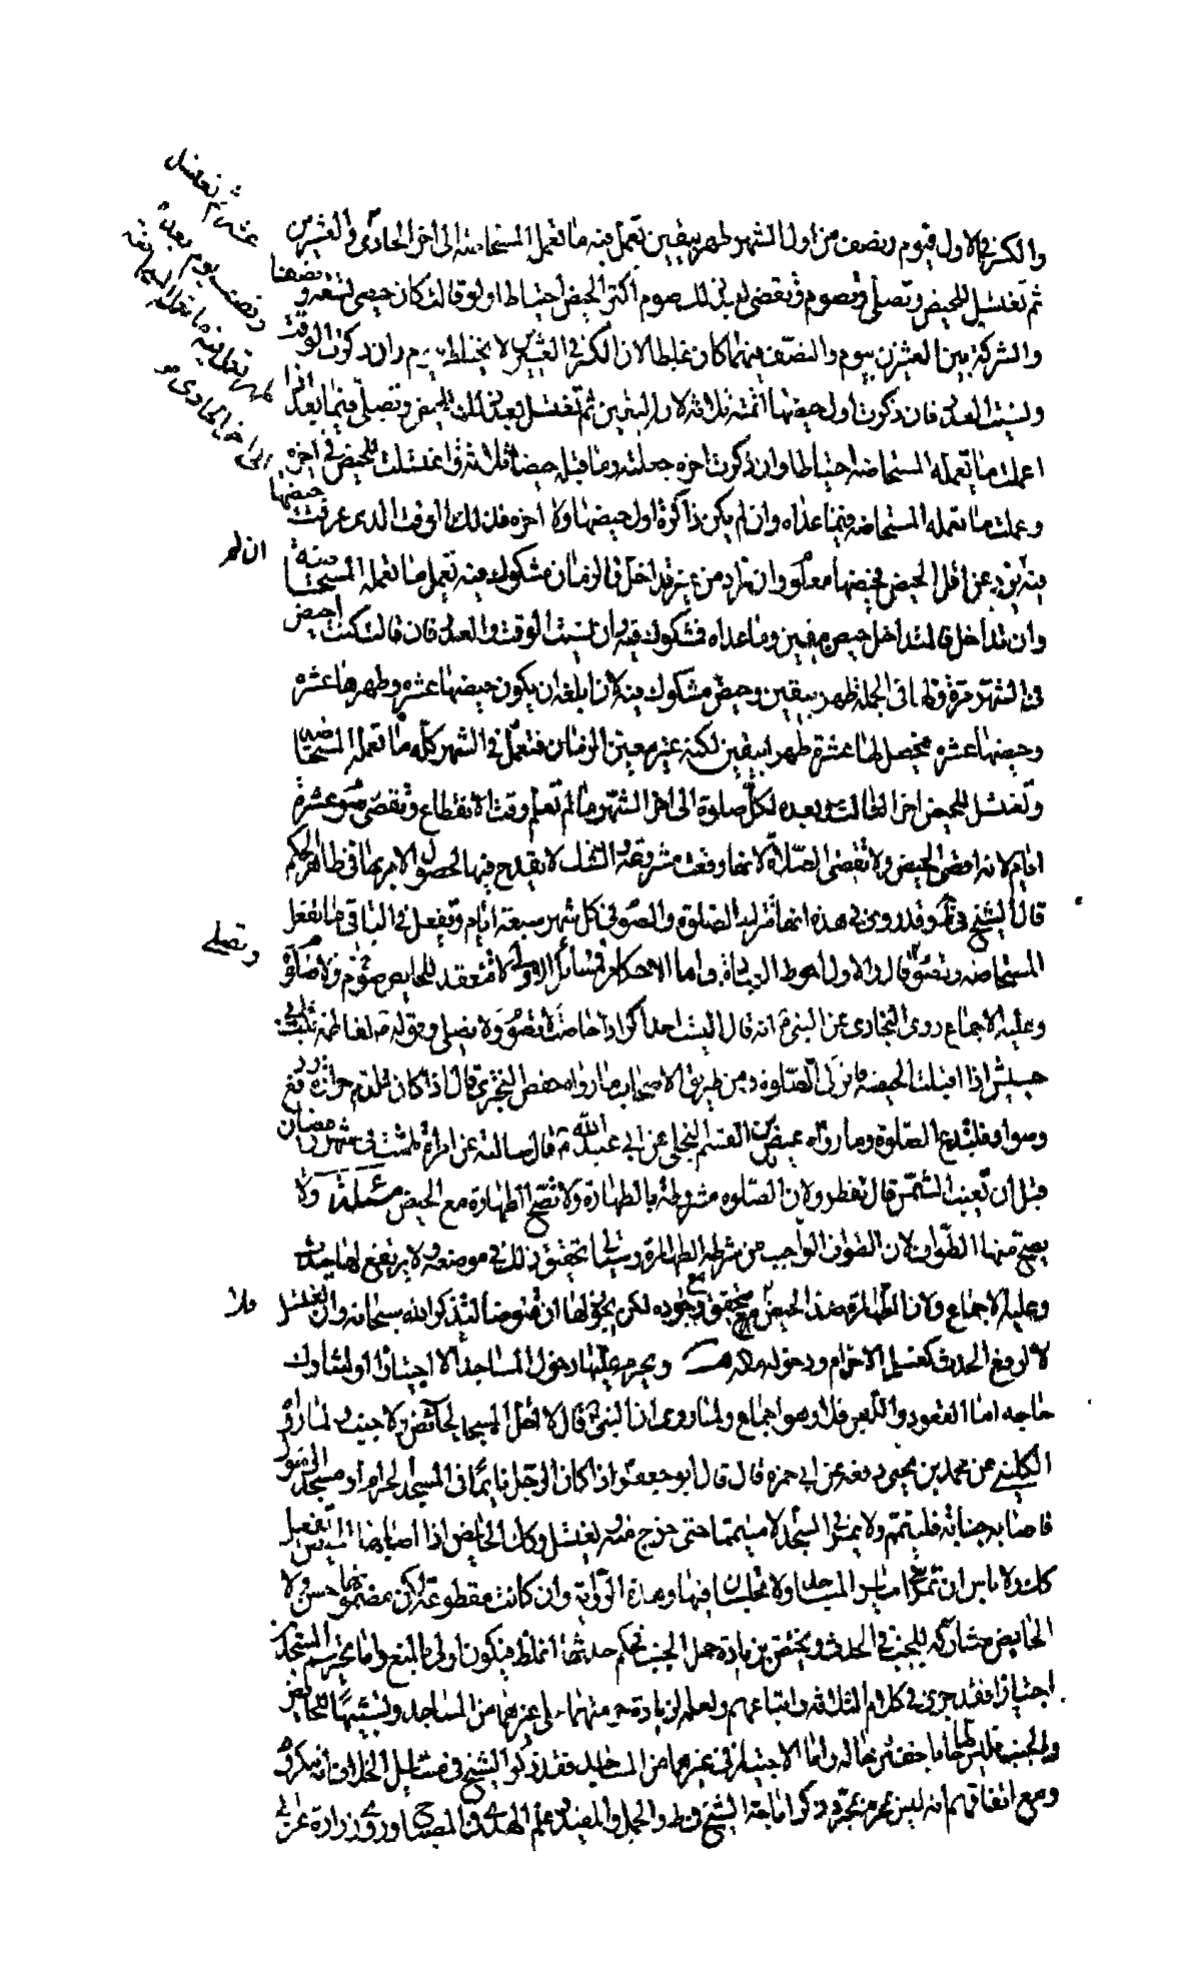 والكسر في الاول فيوم ونصف من اول الشهر طهر بيقين تعمل فيه ما تعمل المستحاضة الى اخر الحادي والعشرين
ثم تغتسل للحيض وتصلي وتصوم وتقضي بعد ذلك صوم اكثر الحيض احتياطا ولو قالت كان حيضي تسعة ونصفا
والشركة بين العشرين بيوم والنصف منهما كان غلطا لان الكسر في العشرين لا يختلط وان ذكرت الوقت
ونسيت العدد فان ذكرت اول حيضها اتمته ثلاثة لانه اليقين ثم تغتسل بعد ذلك للحيض وتصلي فيما بعد اذا
عملت ما تعمله المستحاضة احتياطا وان ذكرت اخره جعلته وما قبله حيضا ثلاثة واغتسلت للحيض في اخره
وعملت ما تعمله المستحاضة فيما عداه وان لم يكن ذاكرة اول حيضها ولا اخره فذلك الوقت الذي عرفت حيضها
فيه يزيد عن اقل الحيض فحيضها معلوم وان زاد من غير تداخل فالزمان مشكوك فيه تعمل ما تعمله المستحاضة فيه
وان تداخل فالمتداخل حيض بيقين وما عداه مشكوك فيه وان نسيت الوقت والعدد فان قالت كنت احيض
في الشهر مرة فلها في الجملة طهر بيقين وحيض مشكوك فيه لان ابلغه ان يكون حيضها عشرة وطهرها عشرة
وحيضها عشرة يحصل لها عشرة طهر بيقين لكنه غير معين الزمان فتعمل في الشهر كله ما تعمله المستحاضة
وتغتسل للحيض اخر الثالث وبعده لكل صلوة الى اخر الشهر ما لم تعلم وقت الانقطاع وتقضي صوم عشرة
ايام لانه اقصى الحيض ولا تقضي الصلاة لانها وقعت مشروعة والشك لا يقدح فيها لحصول الامر بها في ظاهر الحكم
قال الشيخ في وقد روى في هذه انها تترك الصلوة والصوم في كل شهر سبعة ايام وتفعل في الباقي ما تفعل
المستحاضة وتصوم قال والاول احوط للعبادة واما الاحكام فمسائل الاولى لا تنعقد للحايض صوم ولا صلوة
وعليه الاجماع روى البخاري عن النبي انه قال اليست احداكن اذا حاضت لا تصوم ولا تصلي وقوله لفاطمة بنت ابي
حبيش اذا اقبلت الحيضة فاتركي الصلوة ومن طريق الاصحاب ما رواه حفص البختري قال اذا كان للدم حرارة ودفع
وسواد فلتدع الصلوة وما رواه عيص بن القسم البجلي عن ابي عبد الله قال سالته عن امراة طمثت في شهر رمضان
قبل ان تغيب الشمس قال تفطر ولان الصلوة مشروطة بالطهارة ولا تصح الطهارة مع الحيض مسئلة ولا
يصح منها الطواف لان الطواف الواجب من شرطه الطهارة وسياتي تحقيق ذلك في موضعه ولا يرتفع لها حدث
وعليه الاجماع ولان الطهارة ضد الحيض فلا يتحقق مع وجوده لكن يجوز لها ان تتوضا لتذكر الله سبحانه وان تغتسل
لا لرفع الحدث كغسل الاحرام ودخول مكة ويحرم عليها دخول المساجد الا اجتيازا او لتناول
حاجة اما القعود واللبث فلا وهو اجماع ولما روى ان النبي قال لا احل المسجد لحائض ولا جنب ولما رواه
الكليني عن محمد بن يحيى رفعه عن ابي حمزة قال قال ابو جعفر اذا كان الرجل نايما في المسجد الحرام او مسجد الرسول
فاصابه جنابة فليتيمم ولا يمر في المسجد الا متيمما حتى يخرج منه ويغتسل وكذا الحايض اذا اصابها الحيض تفعل
كذلك ولا باس ان تمرا في ساير المساجد ولا تجلسان فيها وهذه الرواية وان كانت مقطوعة لكن مضمونها حسن ولان
الحايض مشاركة للجنب في الحدث ويختص بزيادة حمل الجنب فحكم حدثها اغلظ فيكون اولى بالمنع واما تحريم المسجدين
اجتيازا فقد جرى في كلام الثلاثة واتباعهم ولعله لزيادة حرمتهما على غيرهما من المساجد وتشبيها للحايض
والجنب فليس حالها باخف من حاله واما الاجتياز في غيرهما من المساجد فقد ذكر الشيخ في مسائل الخلاف انه مكروه
ومع اتفاقهم انه ليس بمحرم نحو ذكر اباحة الشيخ في ط والجمل والمفيد وعلم الهدى في المصباح وروى زرارة عن ابي
عشر ثم تغتسل
ونصف يوم بعده
طهر تعمل فيه ما تعمل المستحاضة
الى اخر الحادي
ان لم
وتصلي
فلا